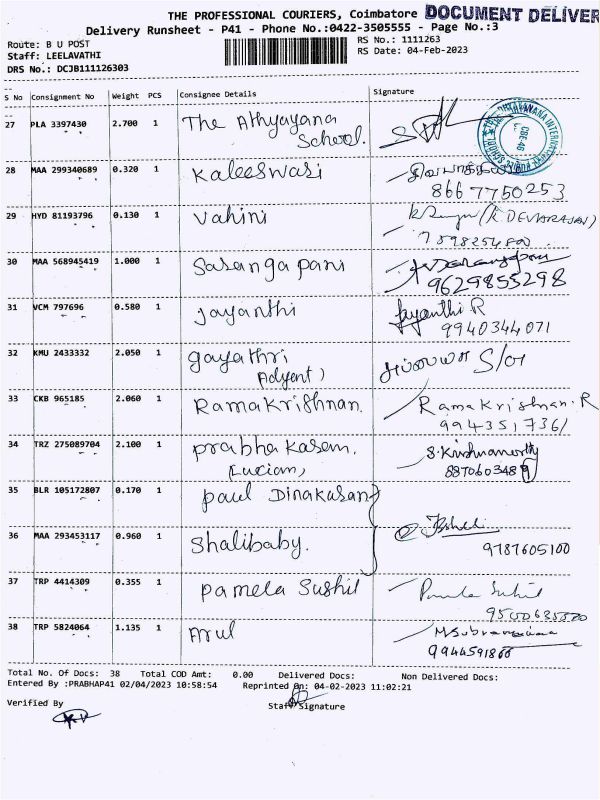 THE PROFESSIONAL COURIERS, Coimbatore DOCUMENT DELIVER
Delivery Runsheet - P41 - Phone No.:0422-3505555 - Page No.:3
Route: B U POST
RS No.: 1111263
Staff: LEELAVATHI
RS Date: 04-Feb-2023
DRS No.: DCJB111126303
S No Consignment No Weight PCS Consignee Details Signature
27 PLA 3397430 2.700 1 The Athyayana
School.
28 MAA 299340689 0.320 1 Kaleeswari
8667750253
29 HYD 81193796 0.130 1 Vahini (K. DEVARAJAN)
30 MAA 568945419 1.000 1 Sasangapani
9629855298
31 VCM 797696 0.580 1 Jayanthi Jayanthi R
9940344071
32 KMU 2433332 2.050 1 gayathri S/o
Adyent)
33 CKB 965185 2.060 1 Ramakrishnan. Ramakrishnan. R
9943517361
34 TRZ 275089704 2.100 1 prabhakasem. S. Krishnamorthy
(Luciam) 8870603489
35 BLR 105172807 0.170 1 paul Dinakasan
36 MAA 293453117 0.960 1 Shalibaby.
9787605100
37 TRP 4414309 0.355 1 pamela Sushil
38 TRP 5824064 1.135 1 Arul
9944591866
Total No. Of Docs: 38 Total COD Amt: 0.00 Delivered Docs: Non Delivered Docs:
Entered By :PRABHAP41 02/04/2023 10:58:54 Reprinted On: 04-02-2023 11:02:21
Verified By Staff Signature